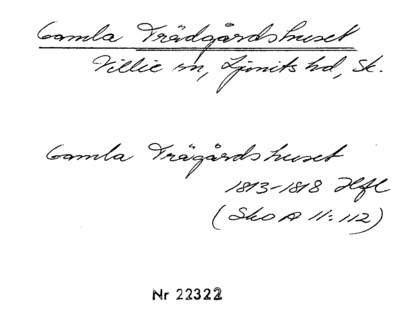 Gamla Trädgårdshuset
Villie sn, Ljunits hd, Sk.
Gamla Trägårdshuset
1813-1818 Hfl
(SkoA 11:112)
Nr 22322